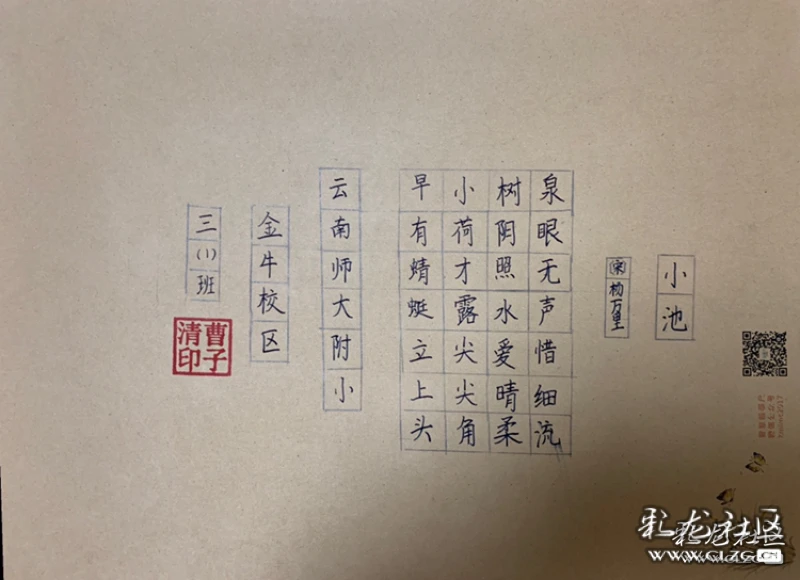 小池
（宋）杨万里
泉眼无声惜细流
树阴照水爱晴柔
小荷才露尖尖角
早有蜻蜓立上头
云南师大附小
金牛校区
三（1）班
曹子清印
彩龙社区
WWW.CLZG.CN